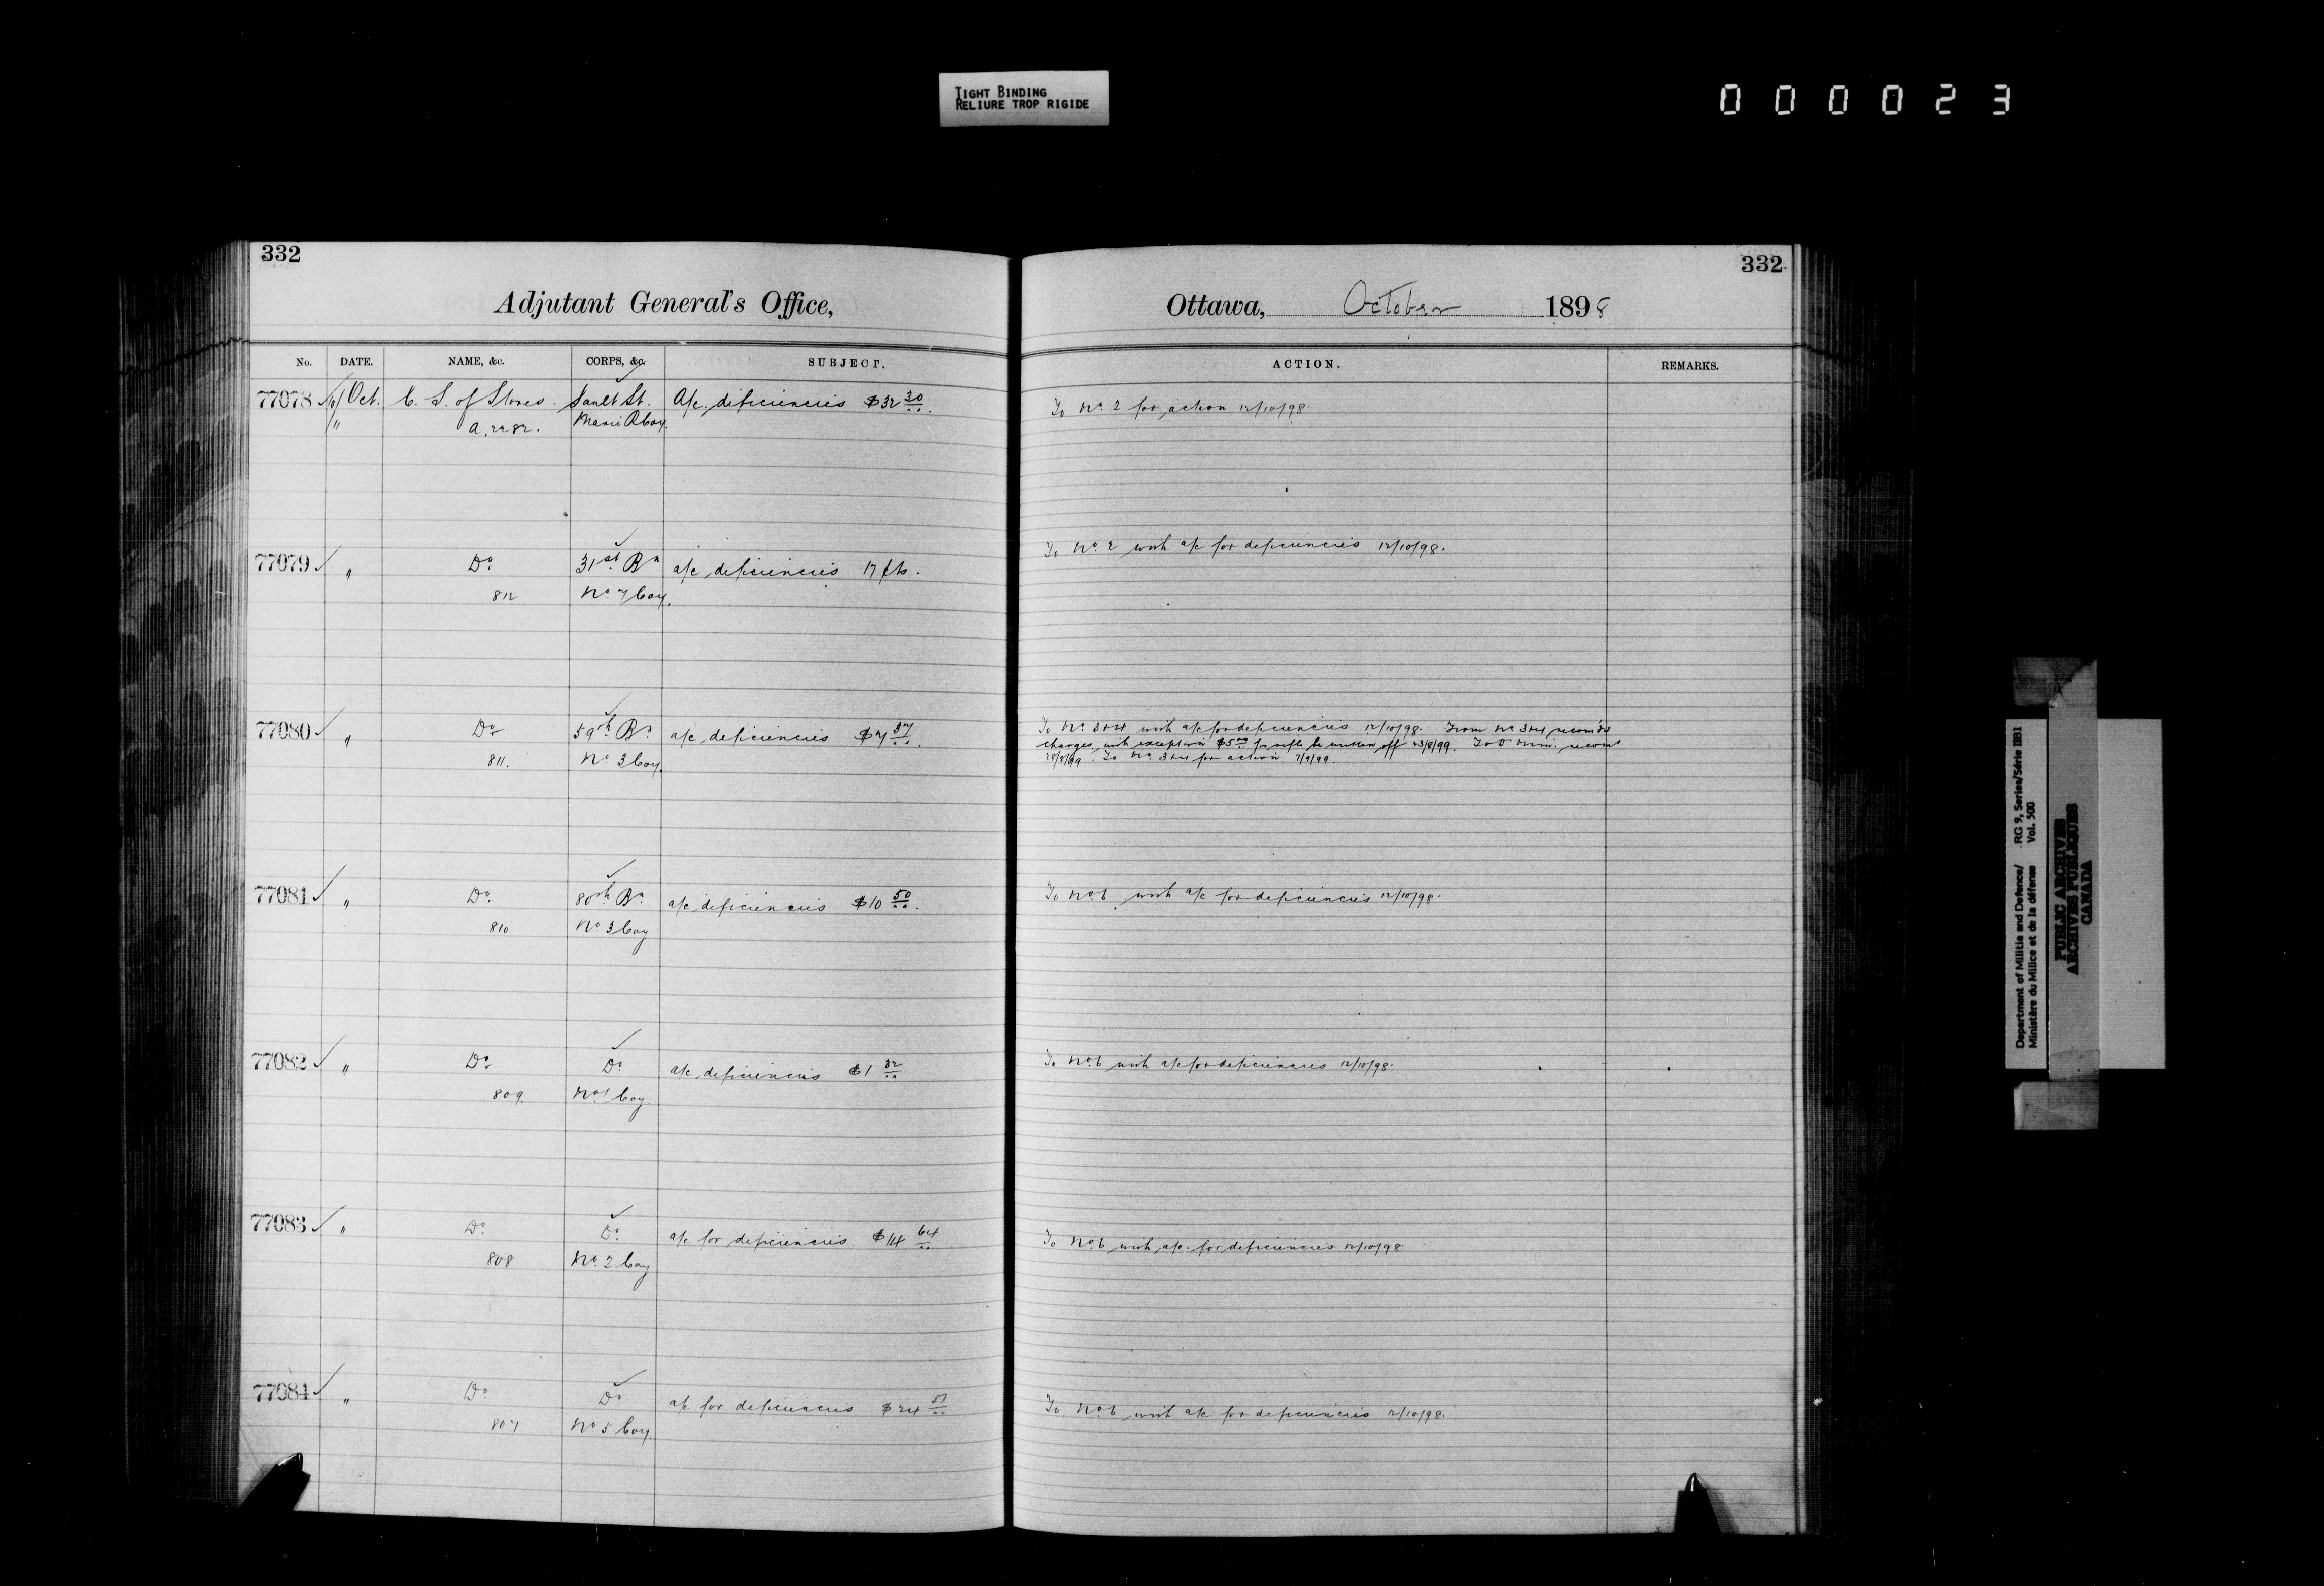 TIGHT BINDING
RELIURE TROP RIGIDE
000023
332
332
Adjutant General's Office,
Ottawa, October 1898
No. DATE. NAME, &c. CORPS, &c. SUBJECT. ACTION. REMARKS.
77078 Oct. C. S. of Stores Sault St. A/c. deficiencies $32 30 To No. 2 for action 12/10/98.
" A. 2282. Marie R Coy.
To No. 2 with a/c for deficiencies 12/10/98.
77079 " Do. 31st Bn a/c deficiencies 17 cts.
812 No 7 Coy.
77080 " Do 59th Bn. a/c deficiencies $7 37. To No. 3+4 with a/c for deficiencies 12/10/98. From No 3+4 recom'ds
charges with exception $5 00 for rifle be written off 23/8/99. To D Min. recom
811. No. 3 Coy. 28/8/99. To No. 3+4 for action 7/9/99.
77081 " Do. 80th Bn. a/c deficiencies $10 50. To No. 6 with a/c for deficiencies 12/10/98.
810 No 3 Coy
77082 " Do Do. a/c deficiencies $1 32 To No. 6 with a/c for deficiencies 12/10/98.
809. No. 1 Coy
77083 " Do. Do. a/c for deficiencies $14 64 To No. 6 with a/c. for deficiencies 12/10/98
808 No. 2 Coy
77084 " Do. Do. a/c for deficiencies $24 51 To No. 6 with a/c for deficiencies 12/10/98.
807 No 5 Coy.
Department of Militia and Defence/ RG 9, Series/Série IIB1
Ministère du Milice et de la défense Vol. 500
PUBLIC ARCHIVES
ARCHIVES PUBLIQUES
CANADA